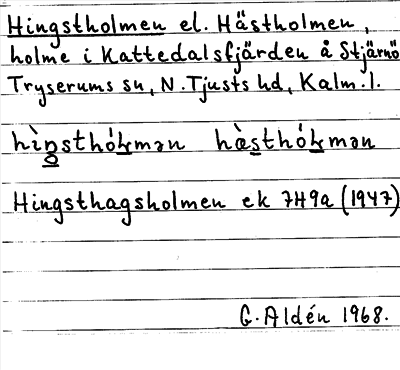 Hingstholmen el. Hästholmen,
holme i Kattedalsfjärden å Stjärnö
Tryserums sn, N. Tjusts hd, Kalm. l.
hìŋsthóḷmən hæ̀sthóḷmən
Hingsthagsholmen ek 7H9a (1947)
G. Aldén 1968.